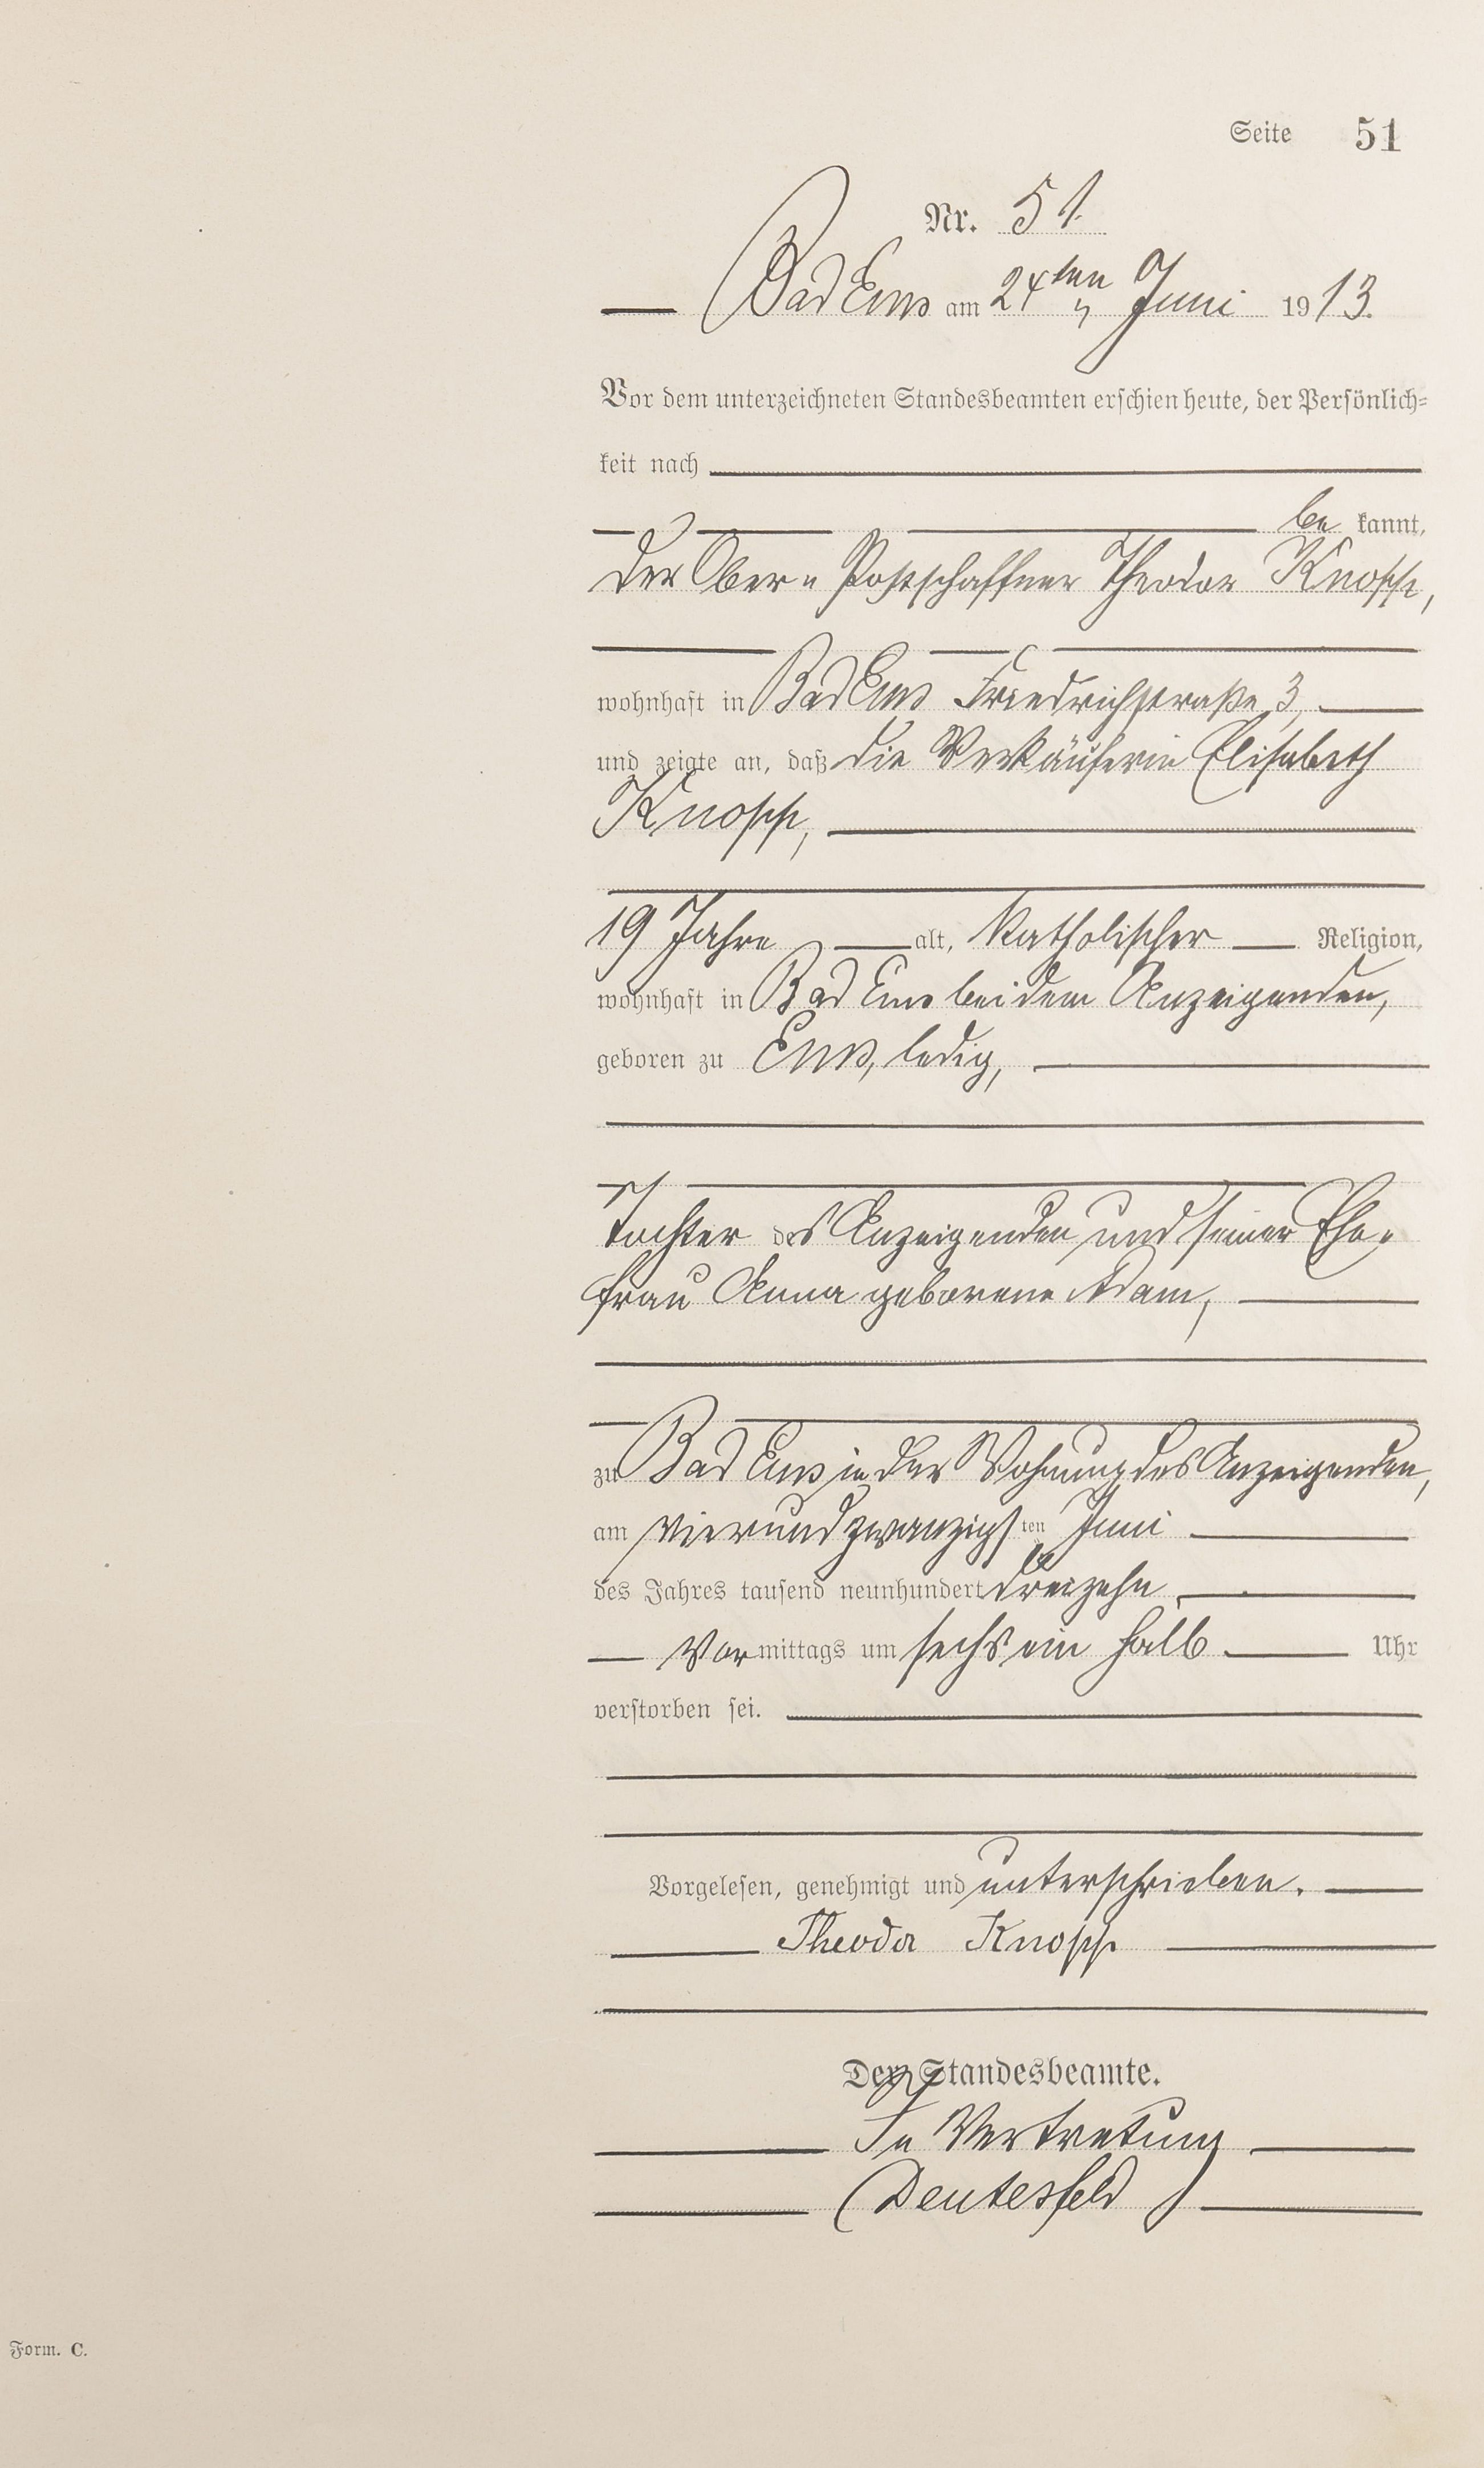 Seite 51
Nr. 51.
Bad Ems am 24ten Juni 1913.
Vor dem unterzeichneten Standesbeamten erschien heute, der Persönlich=
keit nach
be kannt,
der Ober= Postschaffner Theodor Knopp,
wohnhaft in Bad Ems Friedrichstraße 3,
und zeigte an, daß die Verkäuferin Elisabeth
Knopp,
19 Jahre alt, katholischer Religion,
wohnhaft in Bad Ems bei dem Anzeigenden,
geboren zu Ems, ledig,
Tochter des Anzeigenden und seiner Ehe=
frau Anna geborene Adam,
zu Bad Ems in der Wohnung des Anzeigenden,
am vierundzwanzigsten Juni
des Jahres tausend neunhundert dreizehn
Vormittags um sechs ein halb Uhr
verstorben sei.
Vorgelesen, genehmigt und unterschrieben.
Theodor Knopp
Der Standesbeamte.
In Vertretung
Deutesfeld
Form. C.